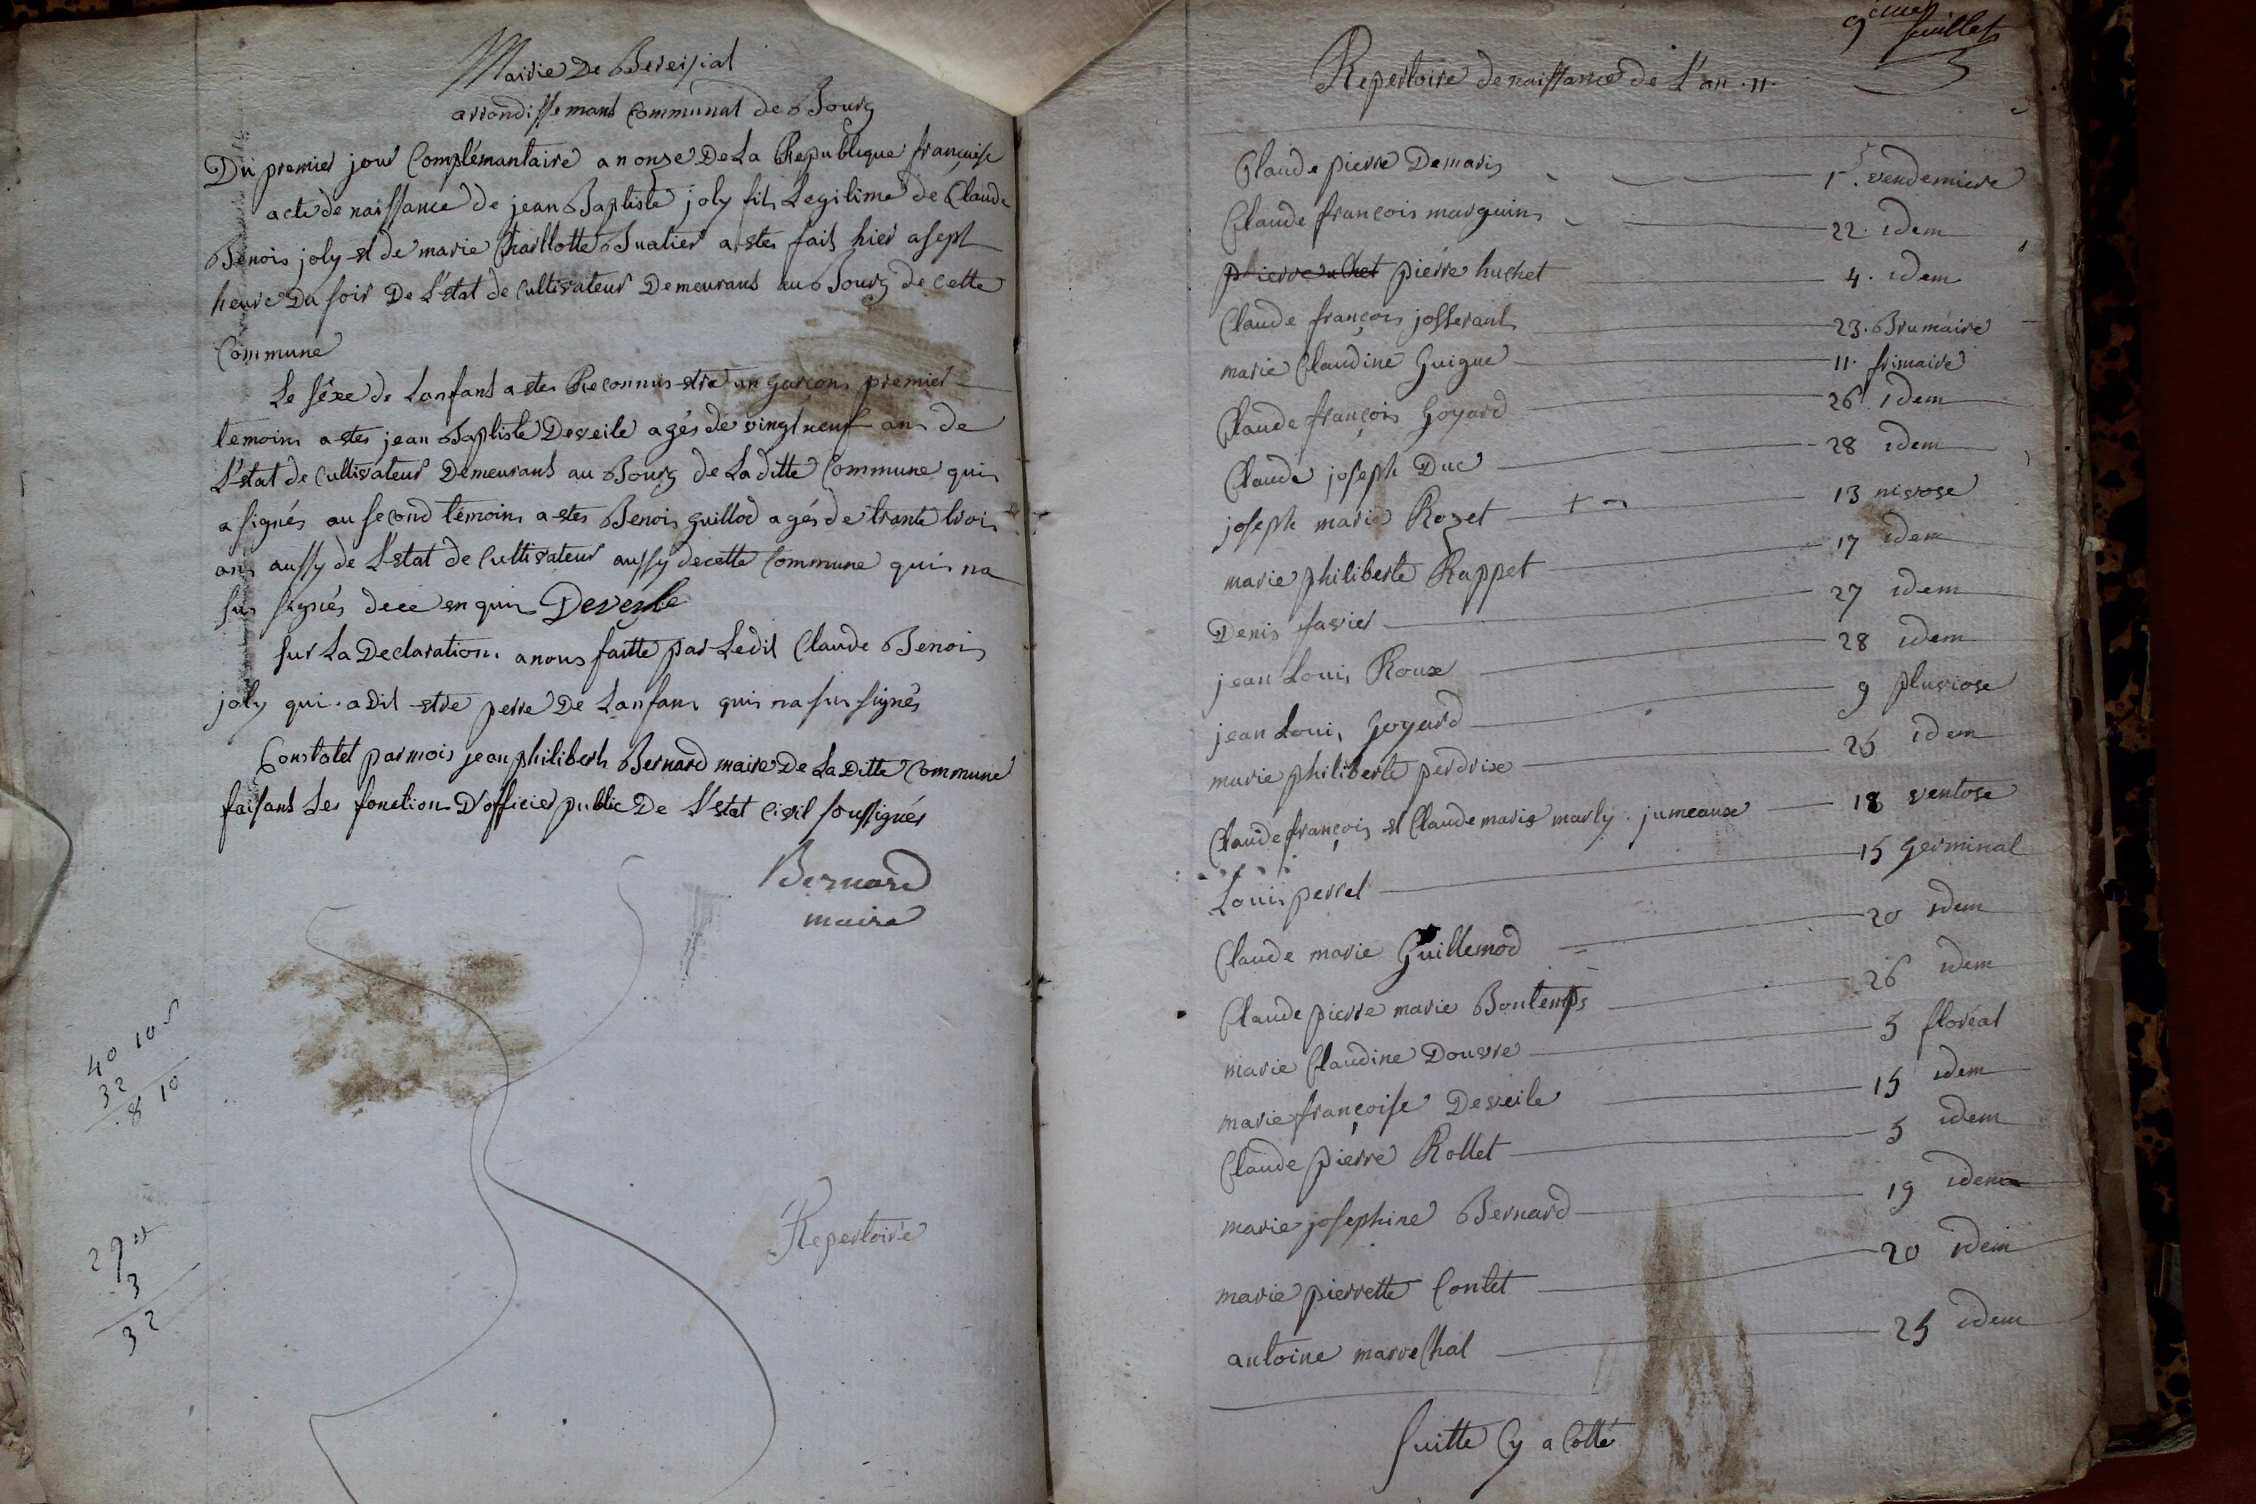 Mairie De Bereisiat
arrondissemant Communal de Bourg
Du premier jour Complémantaire an onze De La Republique françaisse
acte de naissance de jean Baptiste joly fils Legitime de Claude
Benois joly et de marie Charllotte Buatier a etes fait hier a sept
heure Du soir De L'etat de Cultivateur Demeurant au Bourg de Cette
Commune
Le séxe de Lanfant a etes Reconnus etre un garcons premier
temoins a etes jean Baptiste Deveile agés de vingt neuf ans de
L'etat de Cultivateur Demeurant au Bourg de La ditte Commune qui
a signés au second temoins a etes Benois guillod agés de trante trois
ans aussy de L'etat de Cultivateur aussy de cette Commune qui na
sus signés de ce en quis Deveyle
sur La Declaration a nous faitte par Ledit Claude Benois
joly qui a dit etre perre De Lanfans qui na sus signés
Constatet par mois jean philibert Bernard maire De La Ditte Commune
faisant Les fonction D'officier public De L'etat Civil soussignés
Bernard
maire
40 10
32
8 10
29
3
32
Repertoire
9 feuillet
Repertoire de naissance de L'an 11
Claude pierre Damaris 1 vendemiere
Claude françois marguin 22 idem
pierre huchet 4 idem
Claude françois josserant 23 Brumaire
marie Claudine Guigue 11 frimaire
Claude françois Goyard 26 idem
Claude joseph Duc 28 idem
joseph marie Rozet + 13 nivose
marie philiberte Rappet 17 idem
Denis favier 27 idem
jean Louis Roux 28 idem
jean Louis Goyard 9 pluviose
marie philiberte perdrix 25 idem
Claude françois et Claude marie marly jumeaux 18 ventose
Louis perret 15 Germinal
Claude marie Guillemod 20 idem
Claude pierre marie Bontemps 26 idem
marie Claudine Douvre 5 floréal
marie françoise Deveile 15 idem
Claude pierre Rollet 5 idem
marie josephine Bernard 19 idem
marie pierrette Contet 20 idem
antoine marechal 25 idem
suitte Cy a Cotté